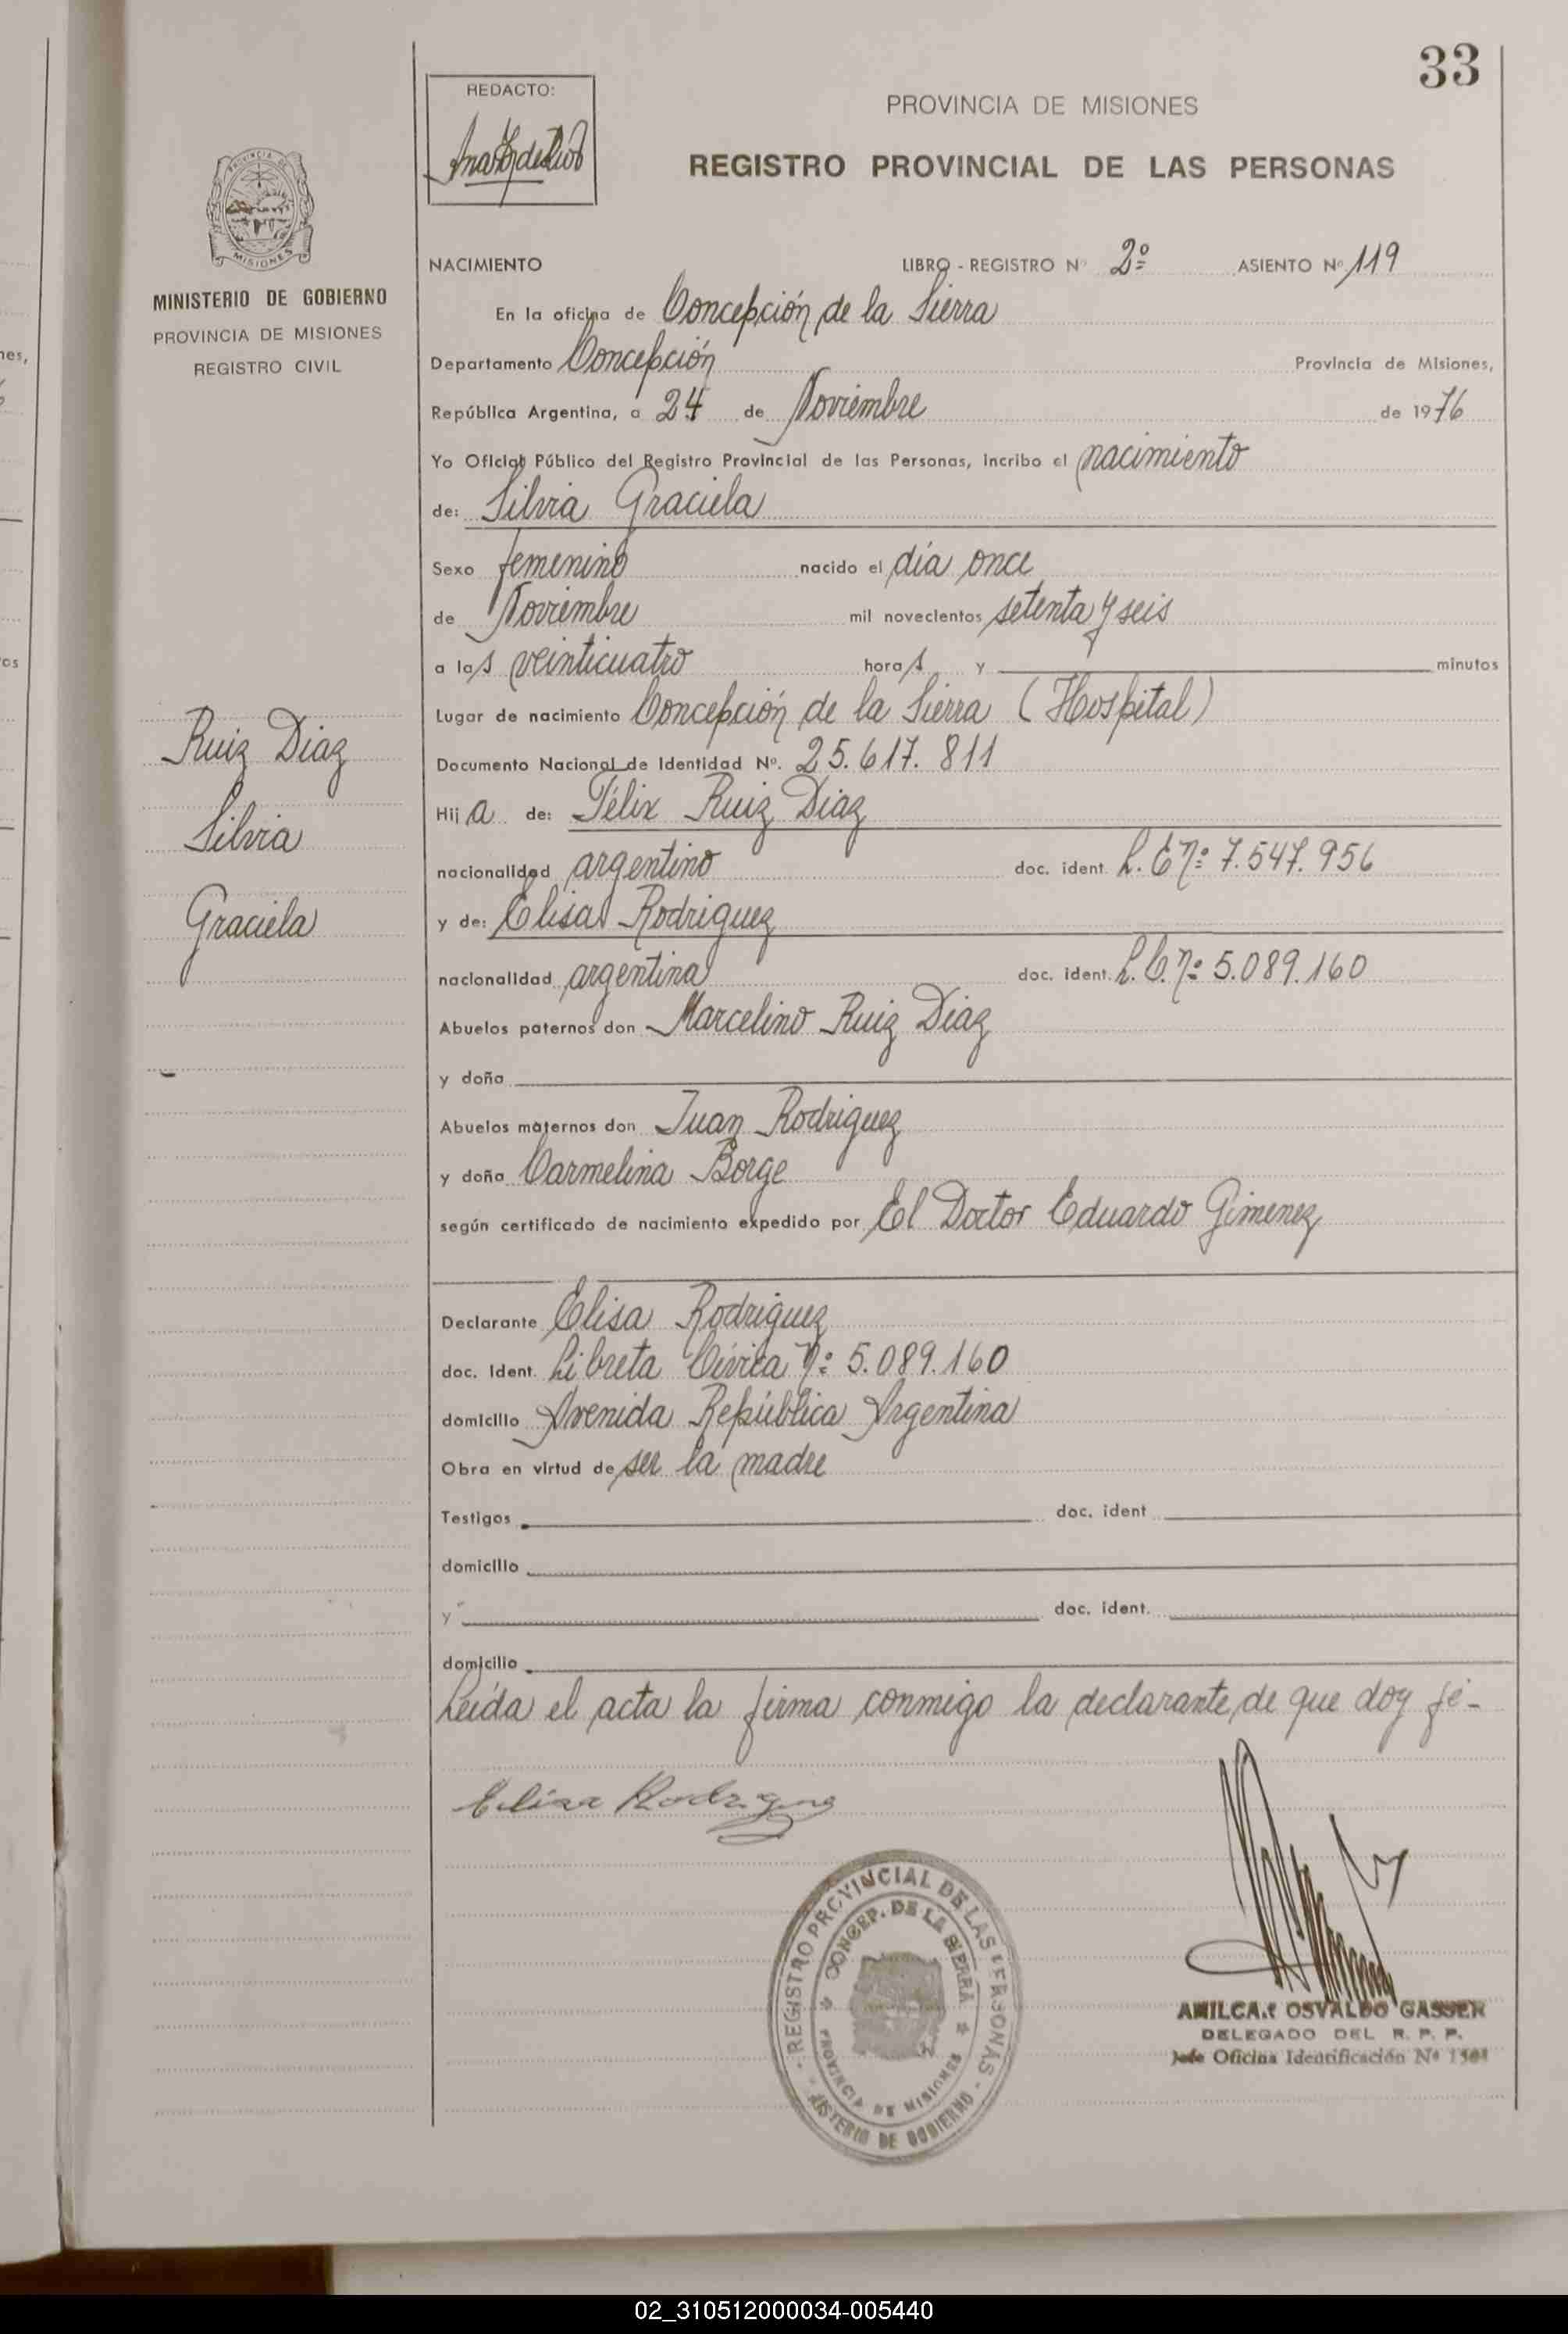 33
REDACTO:
PROVINCIA DE MISIONES
REGISTRO PROVINCIAL DE LAS PERSONAS
MISIONES
MINISTERIO DE GOBIERNO
PROVINCIA DE MISIONES
REGISTRO CIVIL
Ruiz Diaz
Silvia
Graciela
NACIMIENTO LIBRO - REGISTRO Nº 2º ASIENTO Nº 119
En la oficina de Concepción de la Sierra
Departamento Concepción Provincia de Misiones,
República Argentina, a 24 de Noviembre de 1976
Yo Oficial Público del Registro Provincial de las Personas, incribo el nacimiento
de: Silvia Graciela
Sexo femenino nacido el día once
de Noviembre mil novecientos setenta y seis
a las veinticuatro horas y minutos
Lugar de nacimiento Concepción de la Sierra (Hospital)
Documento Nacional de Identidad Nº. 25.617.811
Hija de: Félix Ruiz Diaz
nacionalidad argentino doc. ident. L.E Nº: 7.547.956
y de: Elisa Rodriguez
nacionalidad argentina doc. ident. L.C. Nº: 5.089.160
Abuelos paternos don Marcelino Ruiz Diaz
y doña
Abuelos maternos don Juan Rodriguez
y doña Carmelina Borge
según certificado de nacimiento expedido por El Doctor Eduardo Gimenez
Declarante Elisa Rodriguez
doc. ident. Libreta Cívica Nº: 5.089.160
domicilio Avenida República Argentina
Obra en virtud de ser la madre
Testigos doc. ident
domicilio
y doc. ident.
domicilio
Leída el acta la firma conmigo la declarante, de que doy fé-
Elisa Rodriguez
REGISTRO PROVINCIAL DE LAS PERSONAS
CONCEP. DE LA SIERRA
PROVINCIA DE MISIONES
DE GOBIERNO
AMILCAR OSVALDO GASSER
DELEGADO DEL R. P. P.
Jefe Oficina Identificación Nº
02_310512000034-005440